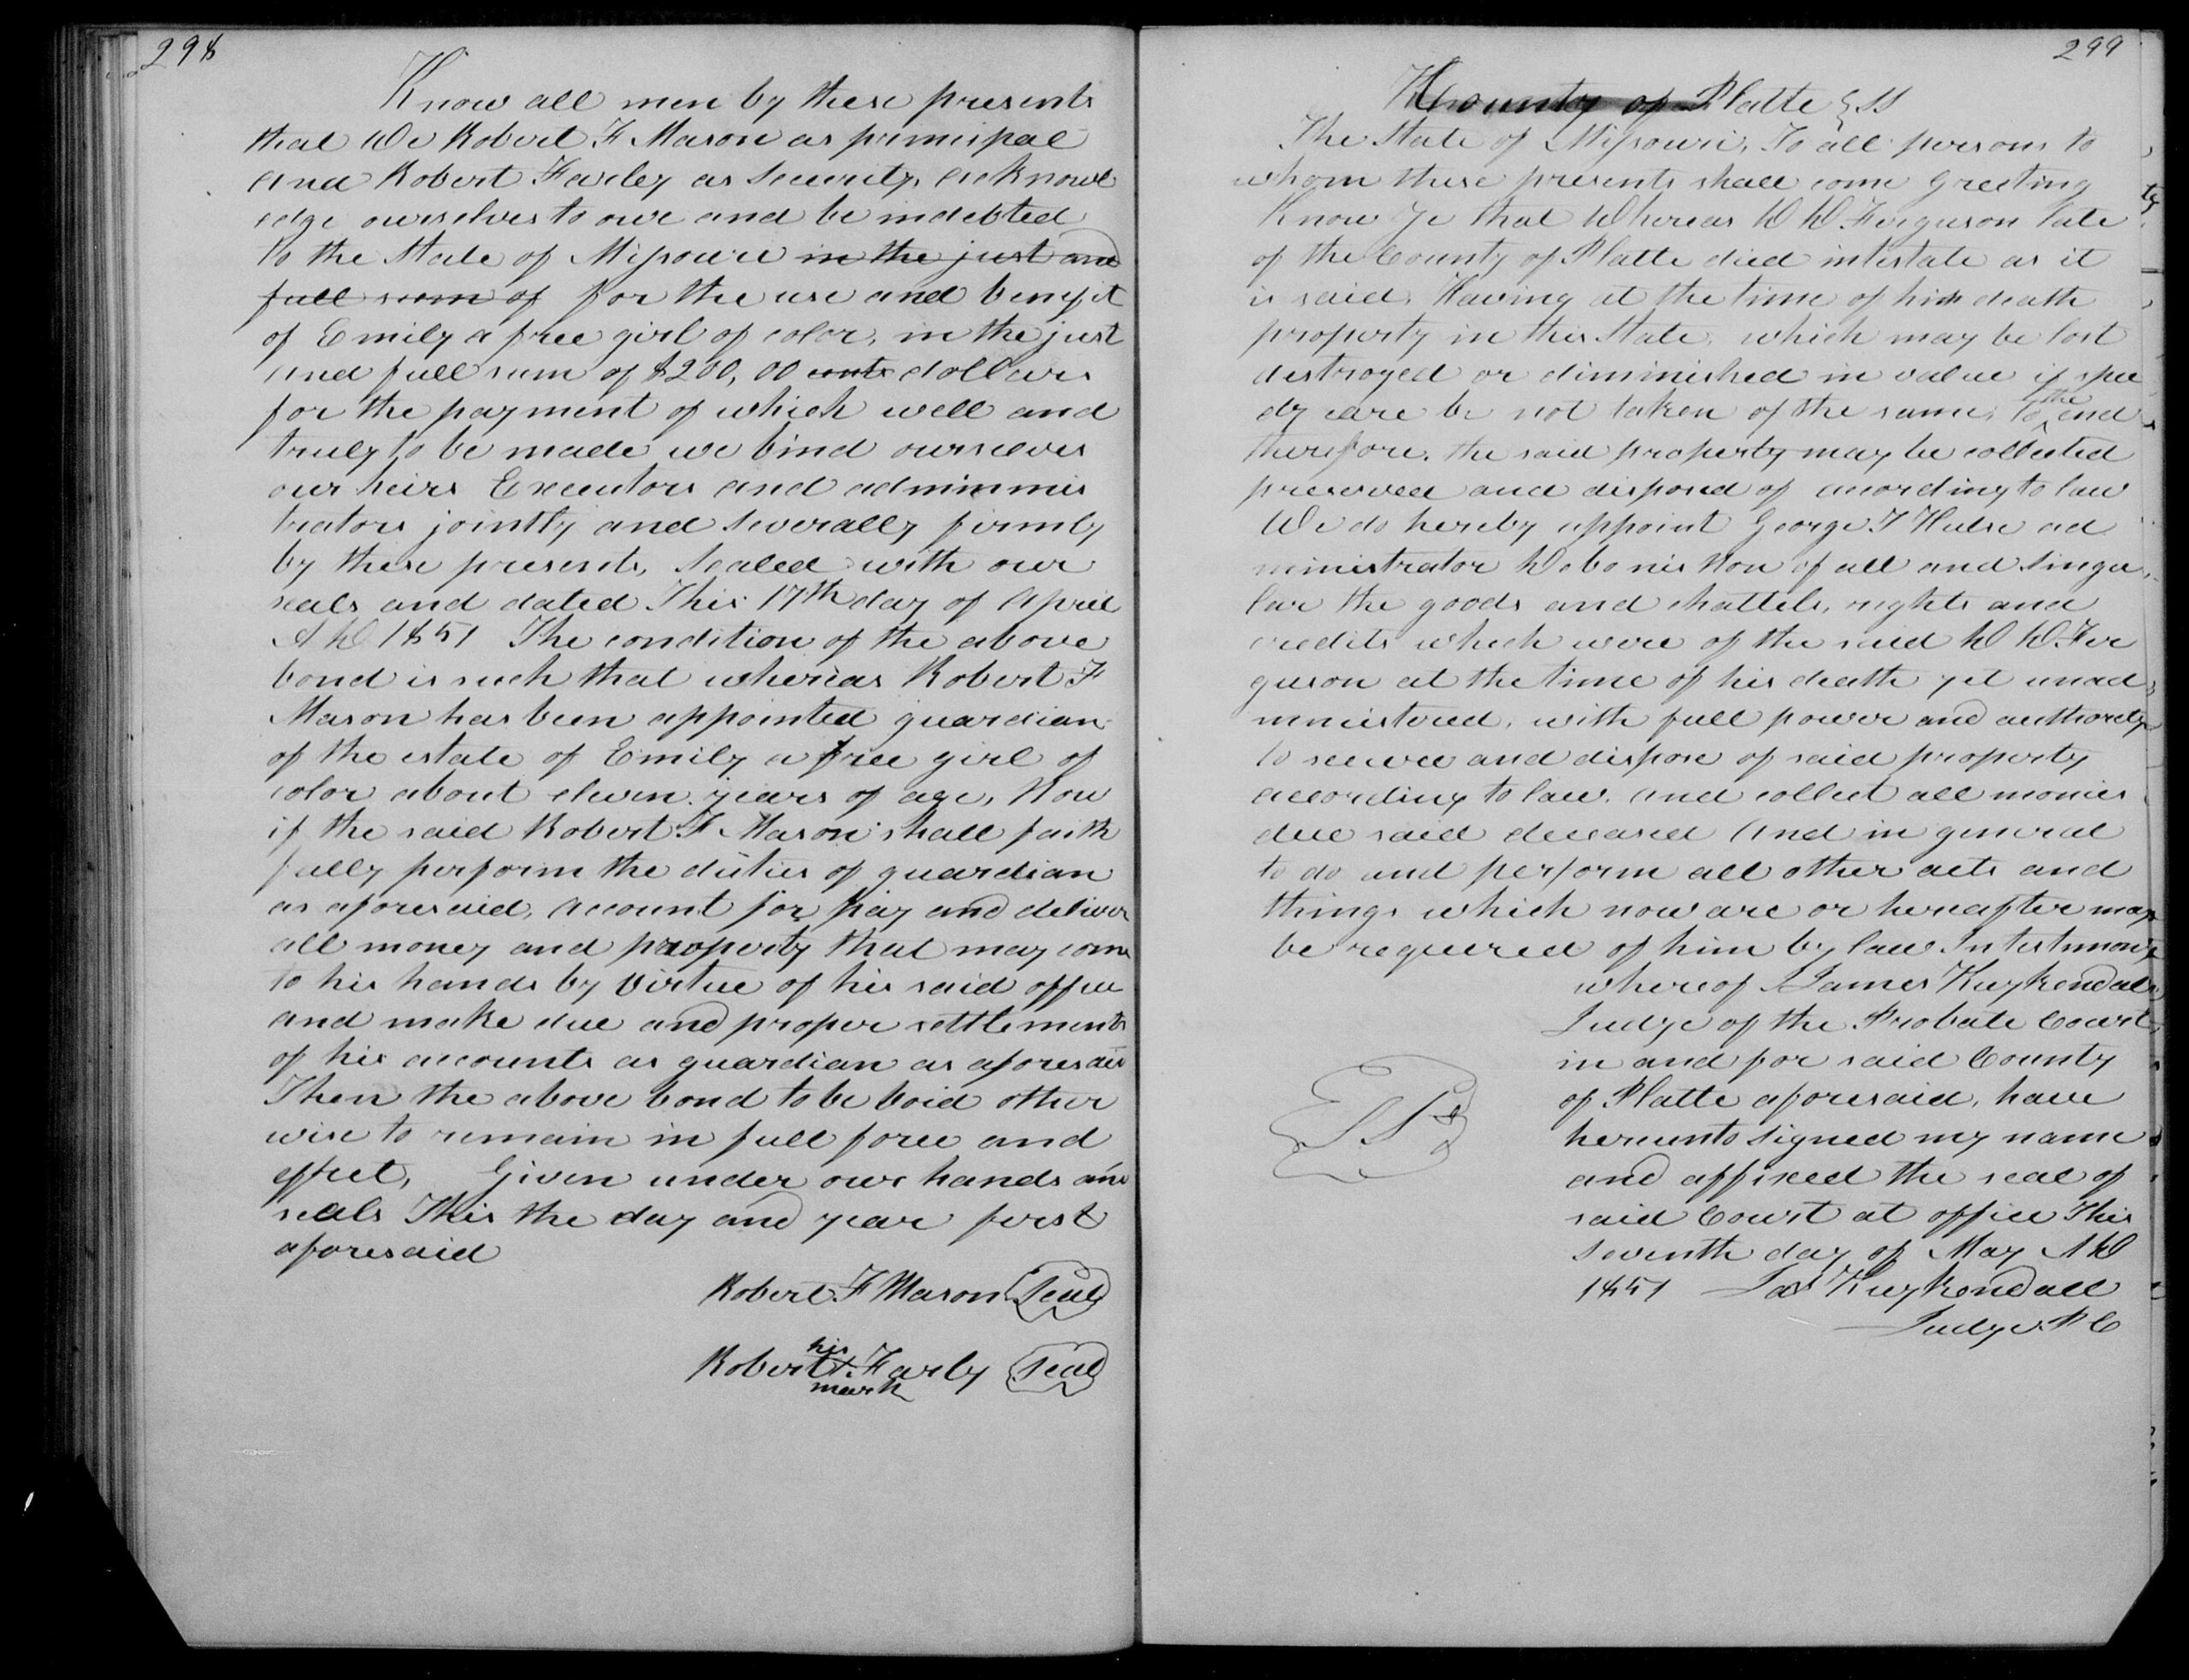 298
Know all men by these presents
that We Robert F Mason as principal
and Robert Farley as Security, acknowl
edge ourselves to owe and be indebted
to the State of Missouri in the just and
full sum of for the use and benefit
of Emily a free girl of color, in the just
and full sum of $200,00 cents dollars
for the payment of which well and
truly to be made we bind ourselves
our heirs Executors and adminnis
trators jointly and severally firmly
by these presents, Sealed with our
seals and dated This 17th day of April
A D 1851 The condition of the above
bond is such that wherias Robert F
Mason has been appointed guardian
of the estate of Emily a free girl of
color about eleven years of age, Now
if the said Robert F Mason shall faith
fully perform the duties of guardian
as aforesaid, account for pay and deliver
all money and property that may come
to his hands by virtue of his said office
and make due and proper settlements
of his accounts as guardian as aforesaid
Then the above bond to be void other
wise to remain in full force and
effect, Given under our hands and
seals This the day and year first
aforesaid
Robert F Mason Seal
his
Robert X Farly Seal
mark
299
County of Platte SS
The State of Missouri, To all persons to
whom these presents shall come Greeting
Know Ye that Whereas D D Ferguson late
of the County of Platte died intestate as it
is said, Having at the time of his death
property in this State, which may be lost
destroyed or diminished in value if spee
dy care be not taken of the same, to the end
therefore, the said property may be collected
preserved and disposed of acording to law
We do hereby appoint George T Hulse ad
ministrator De bonis Non of all and singu
lar the goods and chattels, rights and
credits which were of the said D D Fer
guson at the time of his death yet unad
ministered, with full power and authority
to secure and dispose of said property
according to law, and collect all monies
due said deceased And in general
to do and perform all other acts and
things which now are or hereafter may
be required of him by law In testimony
whereof I James Kuykendall
Judge of the Probate Court
in and for said County
of Platte aforesaid, have
hereunto signed my name
and affixed the seal of
said Court at office This
seventh day of May A D
1851 Jas Kuykendall
Judge P C